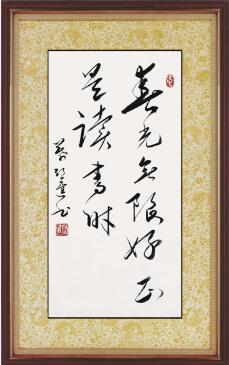 春光无限好正
是读书时